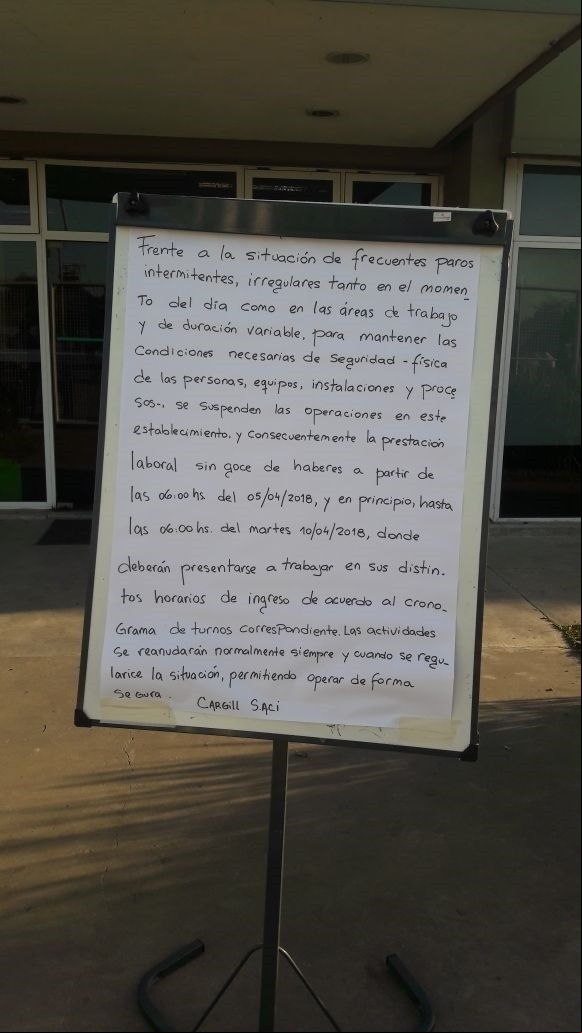 Frente a la situación de frecuentes paros
intermitentes, irregulares tanto en el momen_
To del día como en las áreas de trabajo
y de duración variable, para mantener las
Condiciones necesarias de seguridad - física
de las personas, equipos, instalaciones y proce
sos-, se suspenden las operaciones en este
establecimiento, y consecuentemente la prestación
laboral sin goce de haberes a partir de
las 06:00 hs. del 05/04/2018, y en principio, hasta
las 06:00 hs. del martes 10/04/2018, donde
deberán presentarse a trabajar en sus distin-
tos horarios de ingreso de acuerdo al crono_
Grama de turnos correspondiente. Las actividades
se reanudarán normalmente siempre y cuando se regu_
larice la situación, permitiendo operar de forma
segura.
CARGILL S.ACI